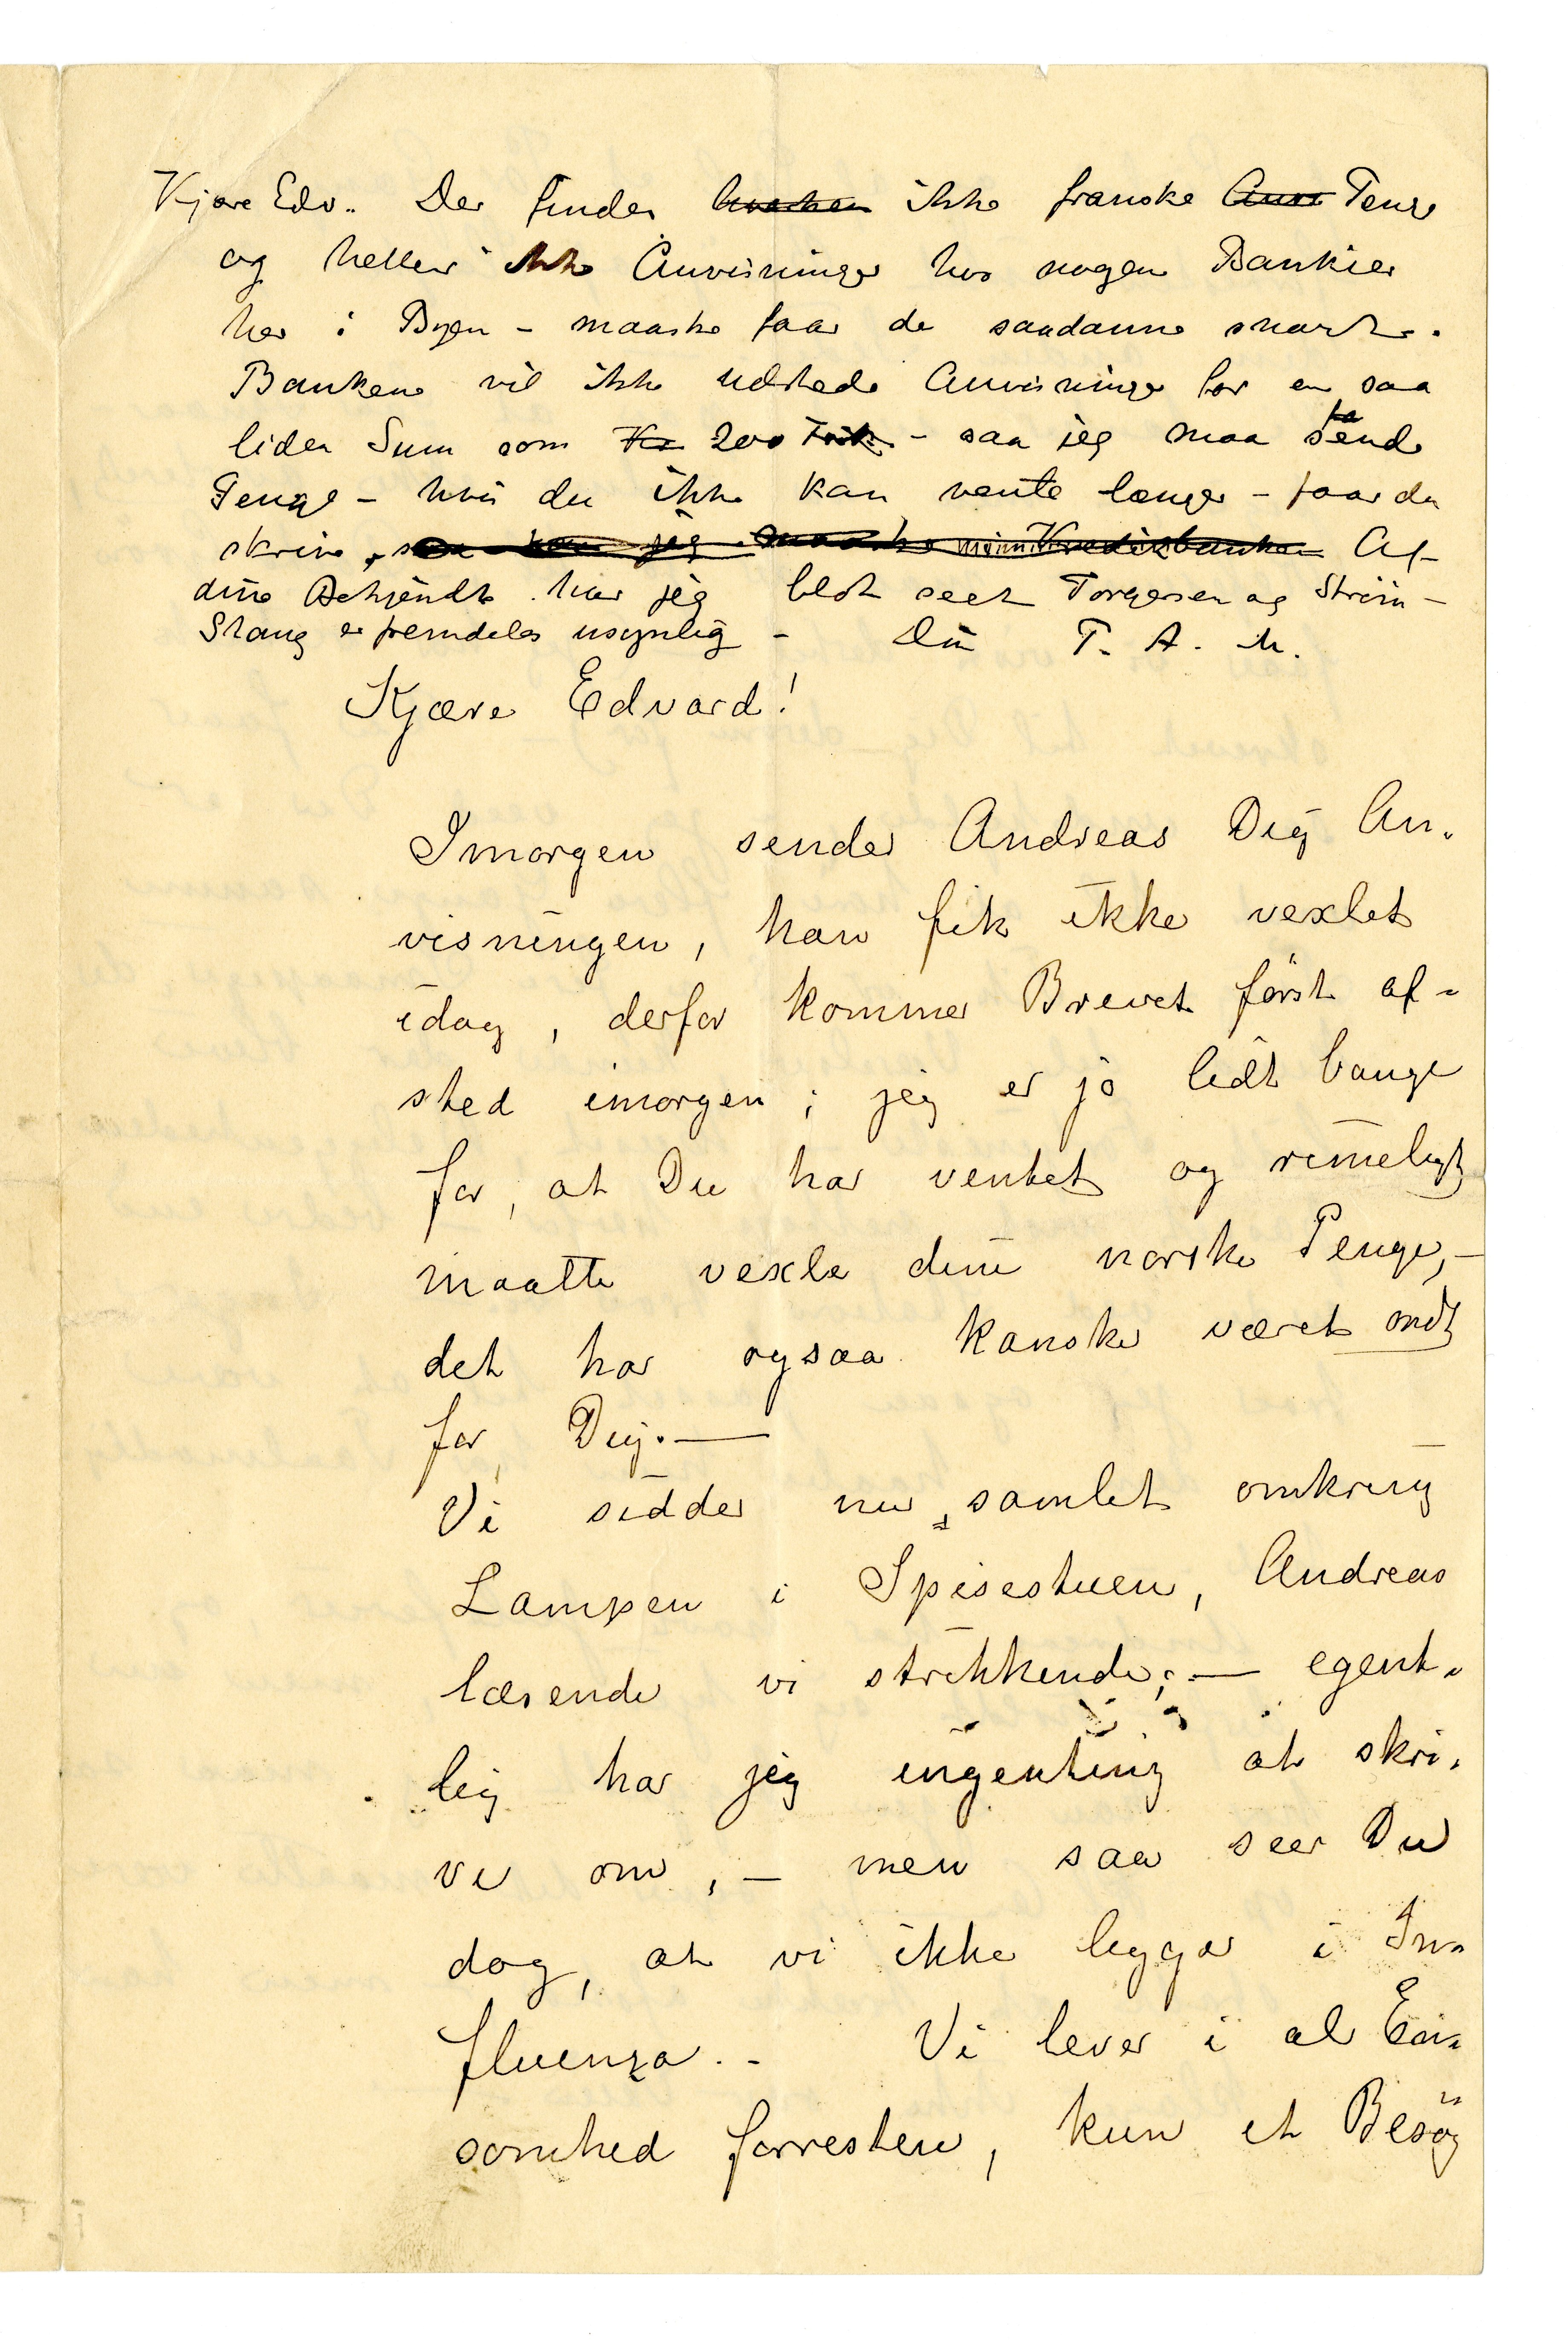 Kjære Edv. Der findes hverken ikke franske Anvi Penge
og heller ikke Anvisninger hos nogen Bankier
her i Byen – maaske faar de saadanne snart.
Bankene vil ikke udstede Anvisninger for en saa
liden Sum som Kr 200 – saa jeg maa sende
Penge – hvis du ikke kan vente længer – faar du
skrive, saa kan jeg maaske Kreditbanken Af
dine Bekjendte har jeg blot seet Torgersen og Strøm –
Stang er fremdeles usynlig – Din P. A. M.
Kjære Edvard!
Imorgen sender Andreas Dig An-
visningen, han fik ikke vexlet
idag, derfor kommer Brevet först af-
sted imorgen; jeg er jo lidt bange
for, at Du har ventet og rimeligt
maatte vexle dine norske Penge, –
det har ogsaa kanske været mdt
for Dig. —
Vi sidder nu samlet omkring
Lampen i Spisestuen, Andreas
læsende vi strikkende; — egent-
lig har jeg ingenting at skri-
ve om, – men saa seer Du
dog, at vi ikke ligger i In-
fluenza. – Vi lever i al En-
somhed forresten, kun et Besög